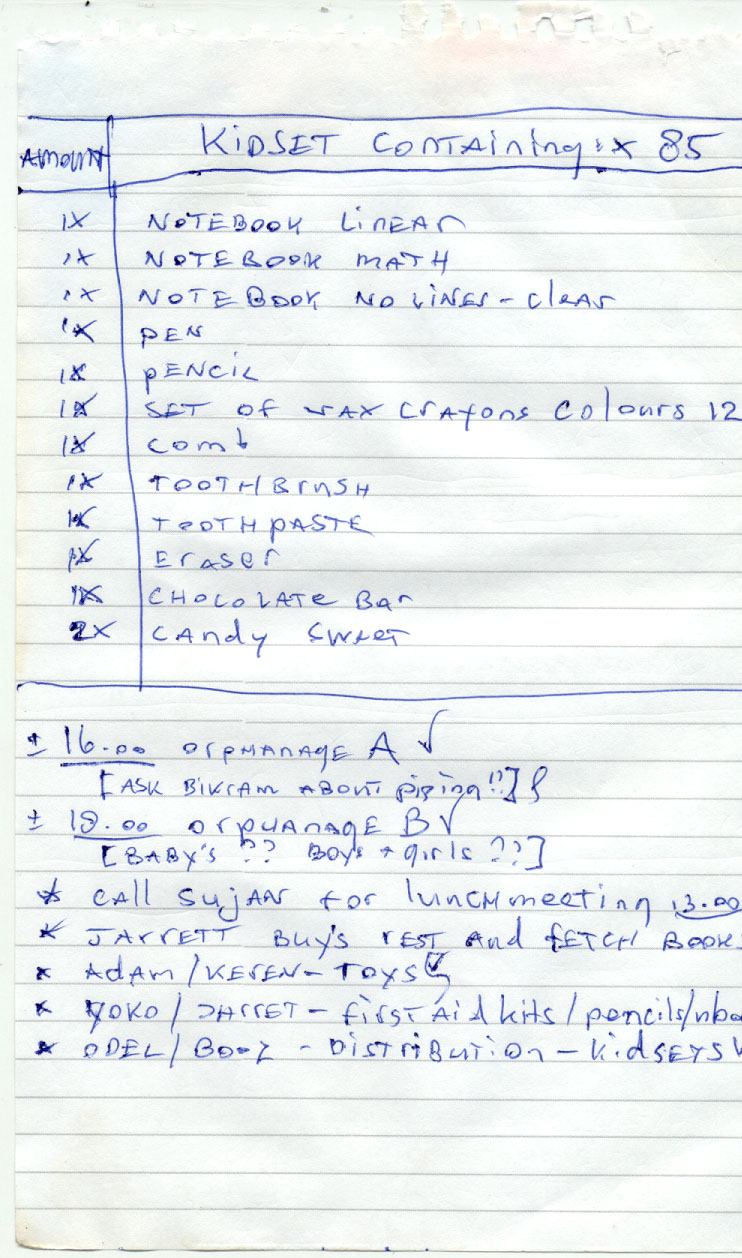 AMOUNT KIDSET CONTAining: x 85
1X NOTEBOOK LINEAR
1X NOTEBOOK MATH
1X NOTEBOOK NO LINES - CLEAR
1X PEN
1X PENCIL
1X SET OF WAX CRAYONS COLOURS 12
1X COMB
1X TOOTHBRUSH
1X TOOTHPASTE
1X ERASER
1X CHOCOLATE BAR
2X CANDY SWEET
± 16.00 ORPHANAGE A √
[ASK BIKRAM ABOUT piping!!]
± 18.00 ORPHANAGE B √
[BABY'S ?? BOYS + girls ??]
* CALL SUJAN for lunCHmeeting 13.00
* JARRETT BUY'S REST AND FETCH BOOK
* ADAM/KEREN - TOYS
* YOKO / JARRET - first AID kits / pencils/nbo
* ODEL/ BOAZ - DISTRIBUTION - KidSETS